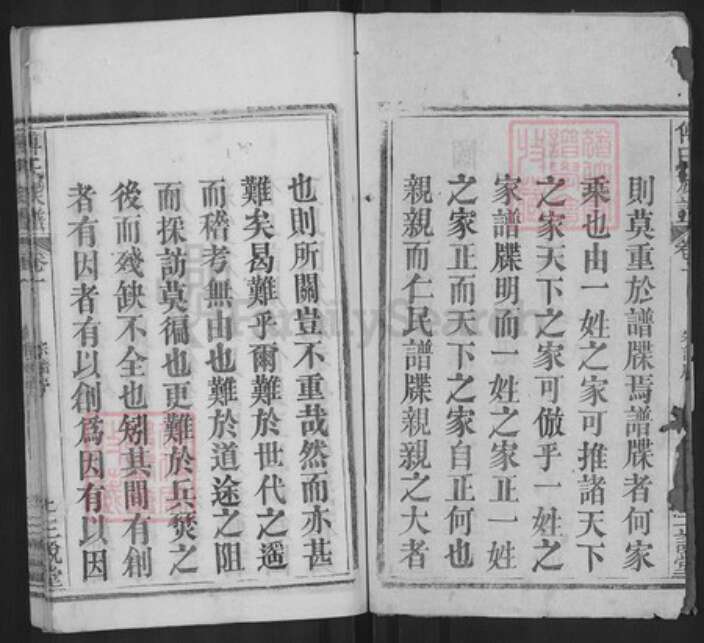 則莫重於譜牒焉譜牒者何家
乘也由一姓之家可推諸天下
之家天下之家可倣乎一姓之
家譜牒明而一姓之家正一姓
之家正而天下之家自正何也
親親而仁民譜牒親親之大者
也則所關豈不重哉然而亦甚
難矣曷難乎爾難於世代之遥
而稽考無由也難於道途之阻
而採訪莫徧也更難於兵燹之
後而殘缺不全也矧其間有創
者有因者有以創為因有以因
卷一
FamilySearch